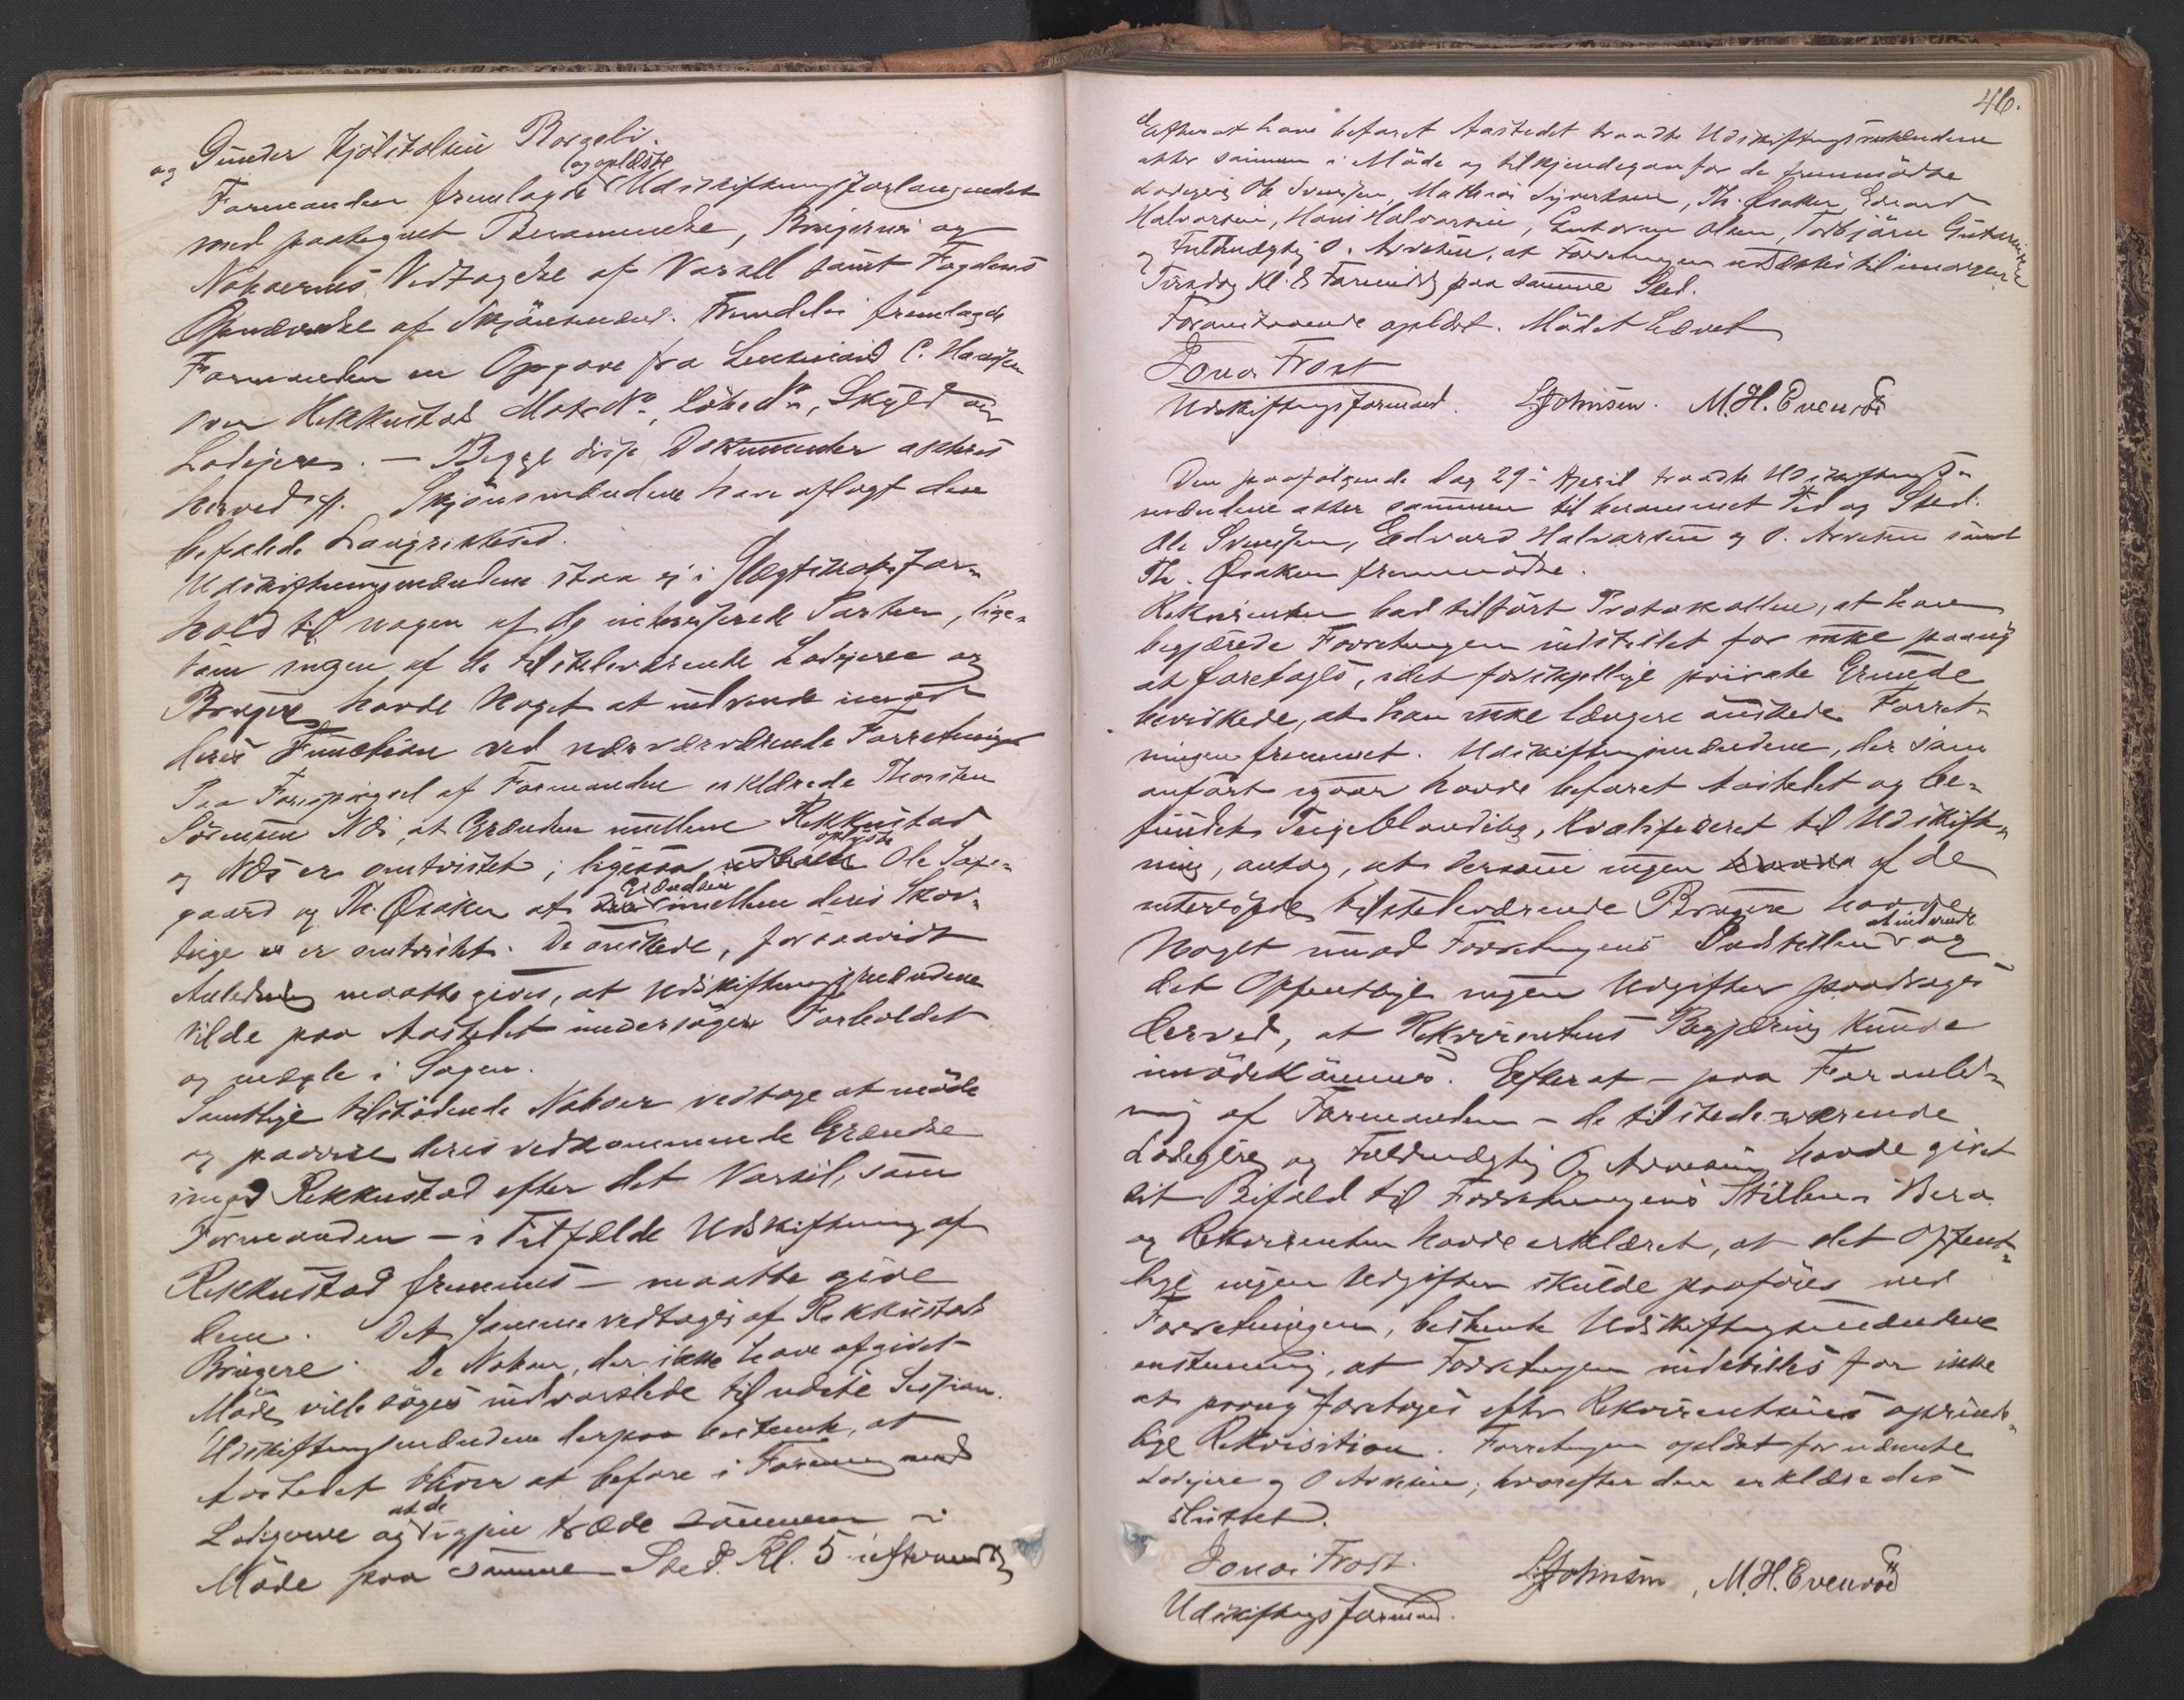 og Gunder Kjölstolsen Borgeli.
Formanden fremlagde og oplæste Udskiftningsforlangendet
med paategnet Berammelse, Brugernes og
Naboernes Vedtagelse af Varsel samt Fogdens
Opnævnelse af Skjönsmænd. Fremdeles fremlagde
Formanden en Opgave fra Lensmand C. Hansen
over Rekkustad Matr. No, Löbe No, Skyld og
Lodejere. — Begge disse Dokumenter akteres
herved. Skjönsmændene have aflagt den
befalede Laugrettesed.
Udskiftningsmændene staa ej i Slægtskabsfor-
hold til nogen af de interesserede Parter, lige-
som ingen af de tilstedeværende Lodejere og
Brugere havde Noget at indvende imod
deres Function ved nærværende Forretning.
Paa Forespörgsel af Formanden erklærede Thorsten
Sörensen Næs, at Grændsen mellem Rekkustad
og Næs er omtvistet; ligesaa oplyste Ole
gaard og Th. Øsaker at Grændsen imellem deres Skov-
teige er omtvistet. De önskede, forsaavidt
Anledning maatte gives, at Udskiftningsmændene
vilde paa Aastedet undersöge Forholdet
og mægle i Sagen.
Samtlige tilstödende Naboer vedtoge at möde
og paavise deres vedkommende Grændse
imod Rekkustad efter det Varsel, som
Formanden — i Tilfælde Udskiftning af
Rekkustad fremmes — maatte give
dem. Det samme vedtoges af Rekkustads
Brugere. De Naboer, der ikke have afgivet
Möde, ville söges indvarslede til næste Session.
Udskiftningsmændene derpaa bestemte, at
Aastedet bliver at befare i Forening med
Lodejerne og at de igjen træde sammen i
Möde paa samme Sted Kl. 5 i eftermiddag
46.
Efterat have befaret Aastedet traadte Udskiftningsmændene
atter sammen i Möde og tilkjendegav for de fremmödte
Lodejere Ole Svensen, Mathias Syvertsen, Th. Øsaker, Edvard
Halvorsen, Hans Halvorsen, Olsen, Torbjörn
og Fuldmægtig O. Arvesen, at Forretningen udsættes til imorgen
Tirsdag Kl. 8 Formidd. paa samme Sted.
Foranstaaende oplæst. Mödet hævet
Jonas Frost
Udskiftningsformand. L. Johnsen. M. H. Evenröd
Den paafölgende Dag 29de April traadte Udskiftnings-
mændene atter sammen til berammet Tid og Sted.
Ole Svensen, Edvard Halvorsen og O. Arvesen samt
Th. Øsaker fremmödte.
Rekvirenten bad tilfört Protokollen, at han
begjærede Forretningen indstillet for ikke paany
at foretages, idet forskjellige private Grunde
bevirkede, at han ikke længere önskede Forret-
ningen fremmet. Udskiftningsmændene, der som
anfört igaar havde befaret Aastedet og be-
fundet Teigeblanding, kvalificeret til Udskift-
ning, antog, at dersom ingen af de
interesserede tilstedeværende Brugere havde
Noget imod Forretningens Indstillen at indvende og
det Offentlige ingen Udgifter paadrages
derved, at Rekvirentens Begjæring kunde
imödekommes. Efterat — paa Foranled-
ning af Formanden — de tilstedeværende
Lodejere og Fuldmægtig O. Arvesen havde givet
sit Bifald til Forretningens Stillen i Bero
og Rekvirenten havde erklæret, at det Offent-
lige ingen Udgifter skulde paaföres ved
Forretningen, bestemte Udskiftningsmændene
enstemmig, at Forretningen indstilles for ikke
at paany foretages efter Rekvirentens oprinde-
lige Rekvisition. Forretningen oplæst for nævnte
Lodejere og O Arvesen; hvorefter den erklæredes
sluttet.
Jonas Frost.
Udskiftningsformand. L. Johnsen, M. H. Evenröd